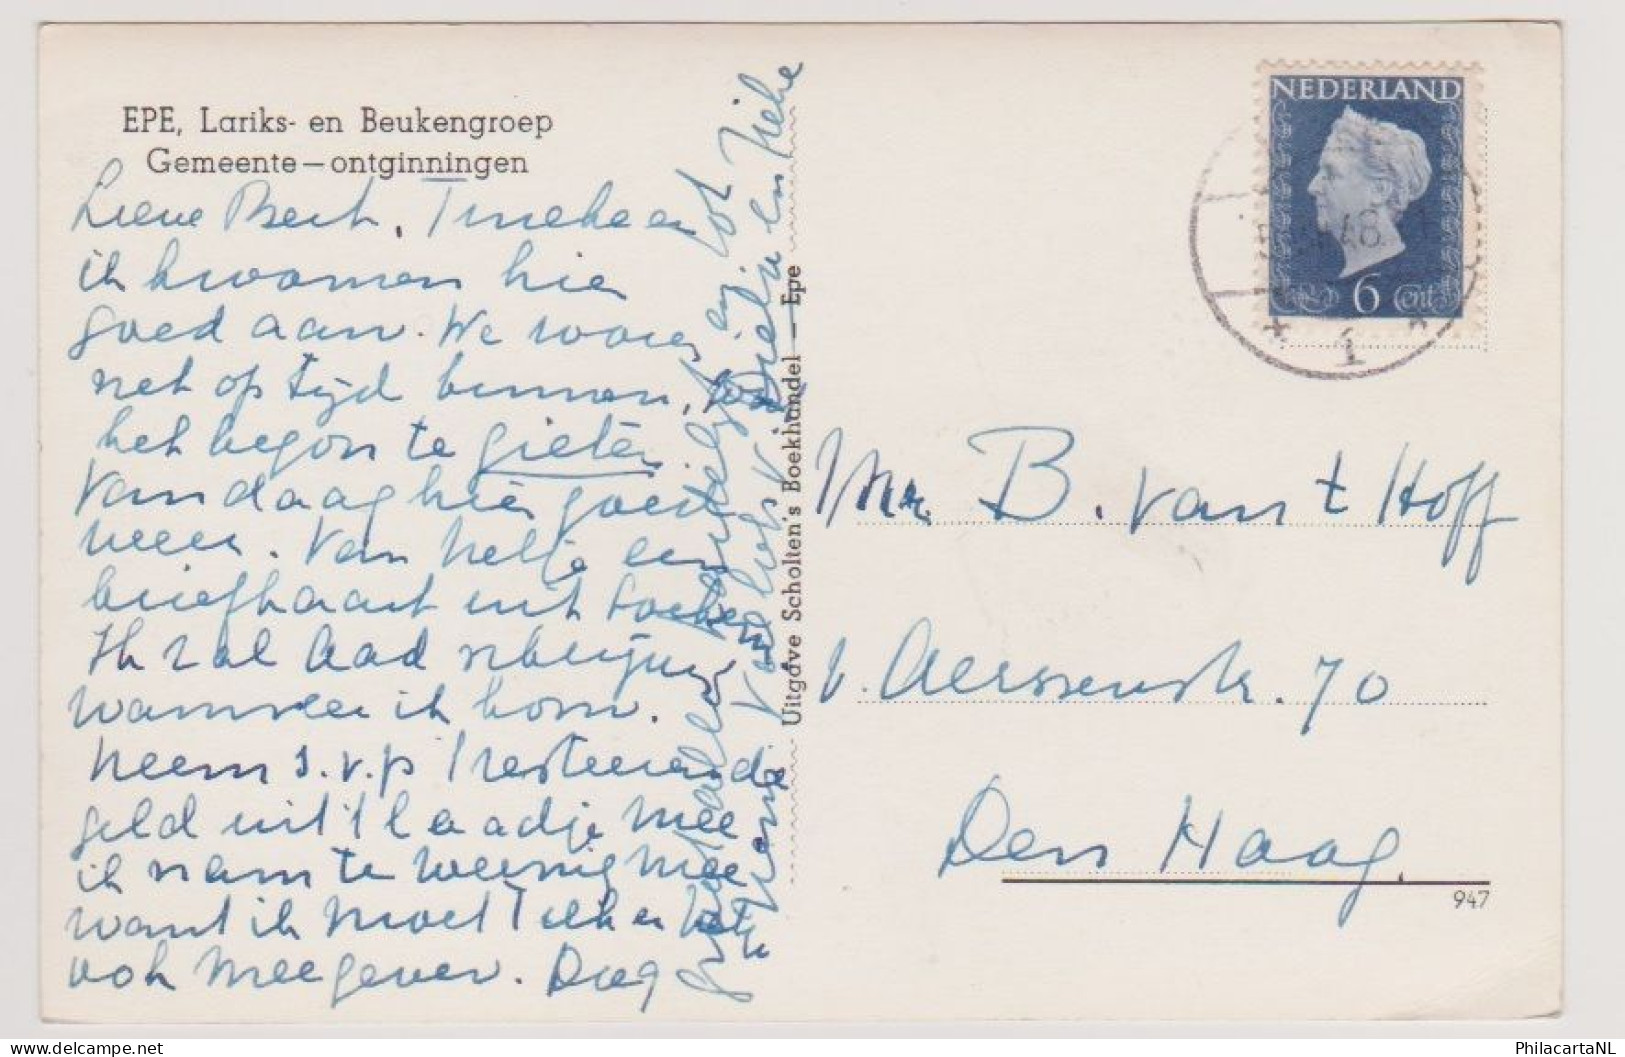 EPE, Lariks- en Beukengroep
Gemeente-ontginningen
Lieve Bert, Tineke en
ik kwamen hier
goed aan. We waren
net op tijd binnen, want
het begon te gieten
Vandaag hier goed
weer. Van Heltje een
briefkaart uit
Ik zal Aad schrijven
wanneer ik kom.
Neem s.v.p 't resteerende
geld uit 't laadje mee
ik nam te weinig mee
want ik moet het
ook meegeven. Dag
en tot
v. en
Uitgave Scholten's Boekhandel - Epe
NEDERLAND
48
6 Cent
* 1 *
Mr. B. van 't Hoff
v. Aerssenstr. 70
Den Haag.
947
https://www.delcampe.net
PhilacartaNL